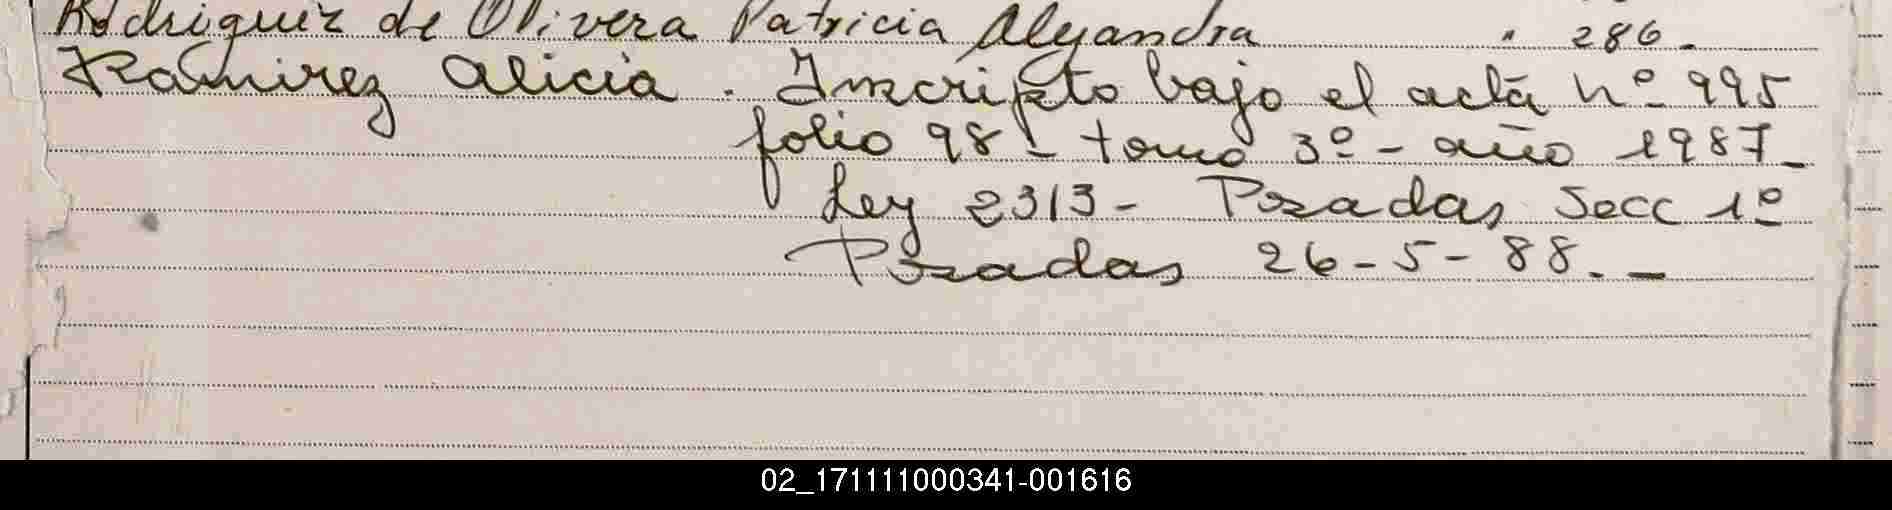 Rodriguez de Olivera Patricia Alejandra " 286.-
Ramirez Alicia . Inscripto bajo el acta nº 995
folio 98 - tomo 3º - año 1987-
Ley 2313 - Posadas, Secc 1º
Posadas 26-5-88.-
02_171111000341-001616